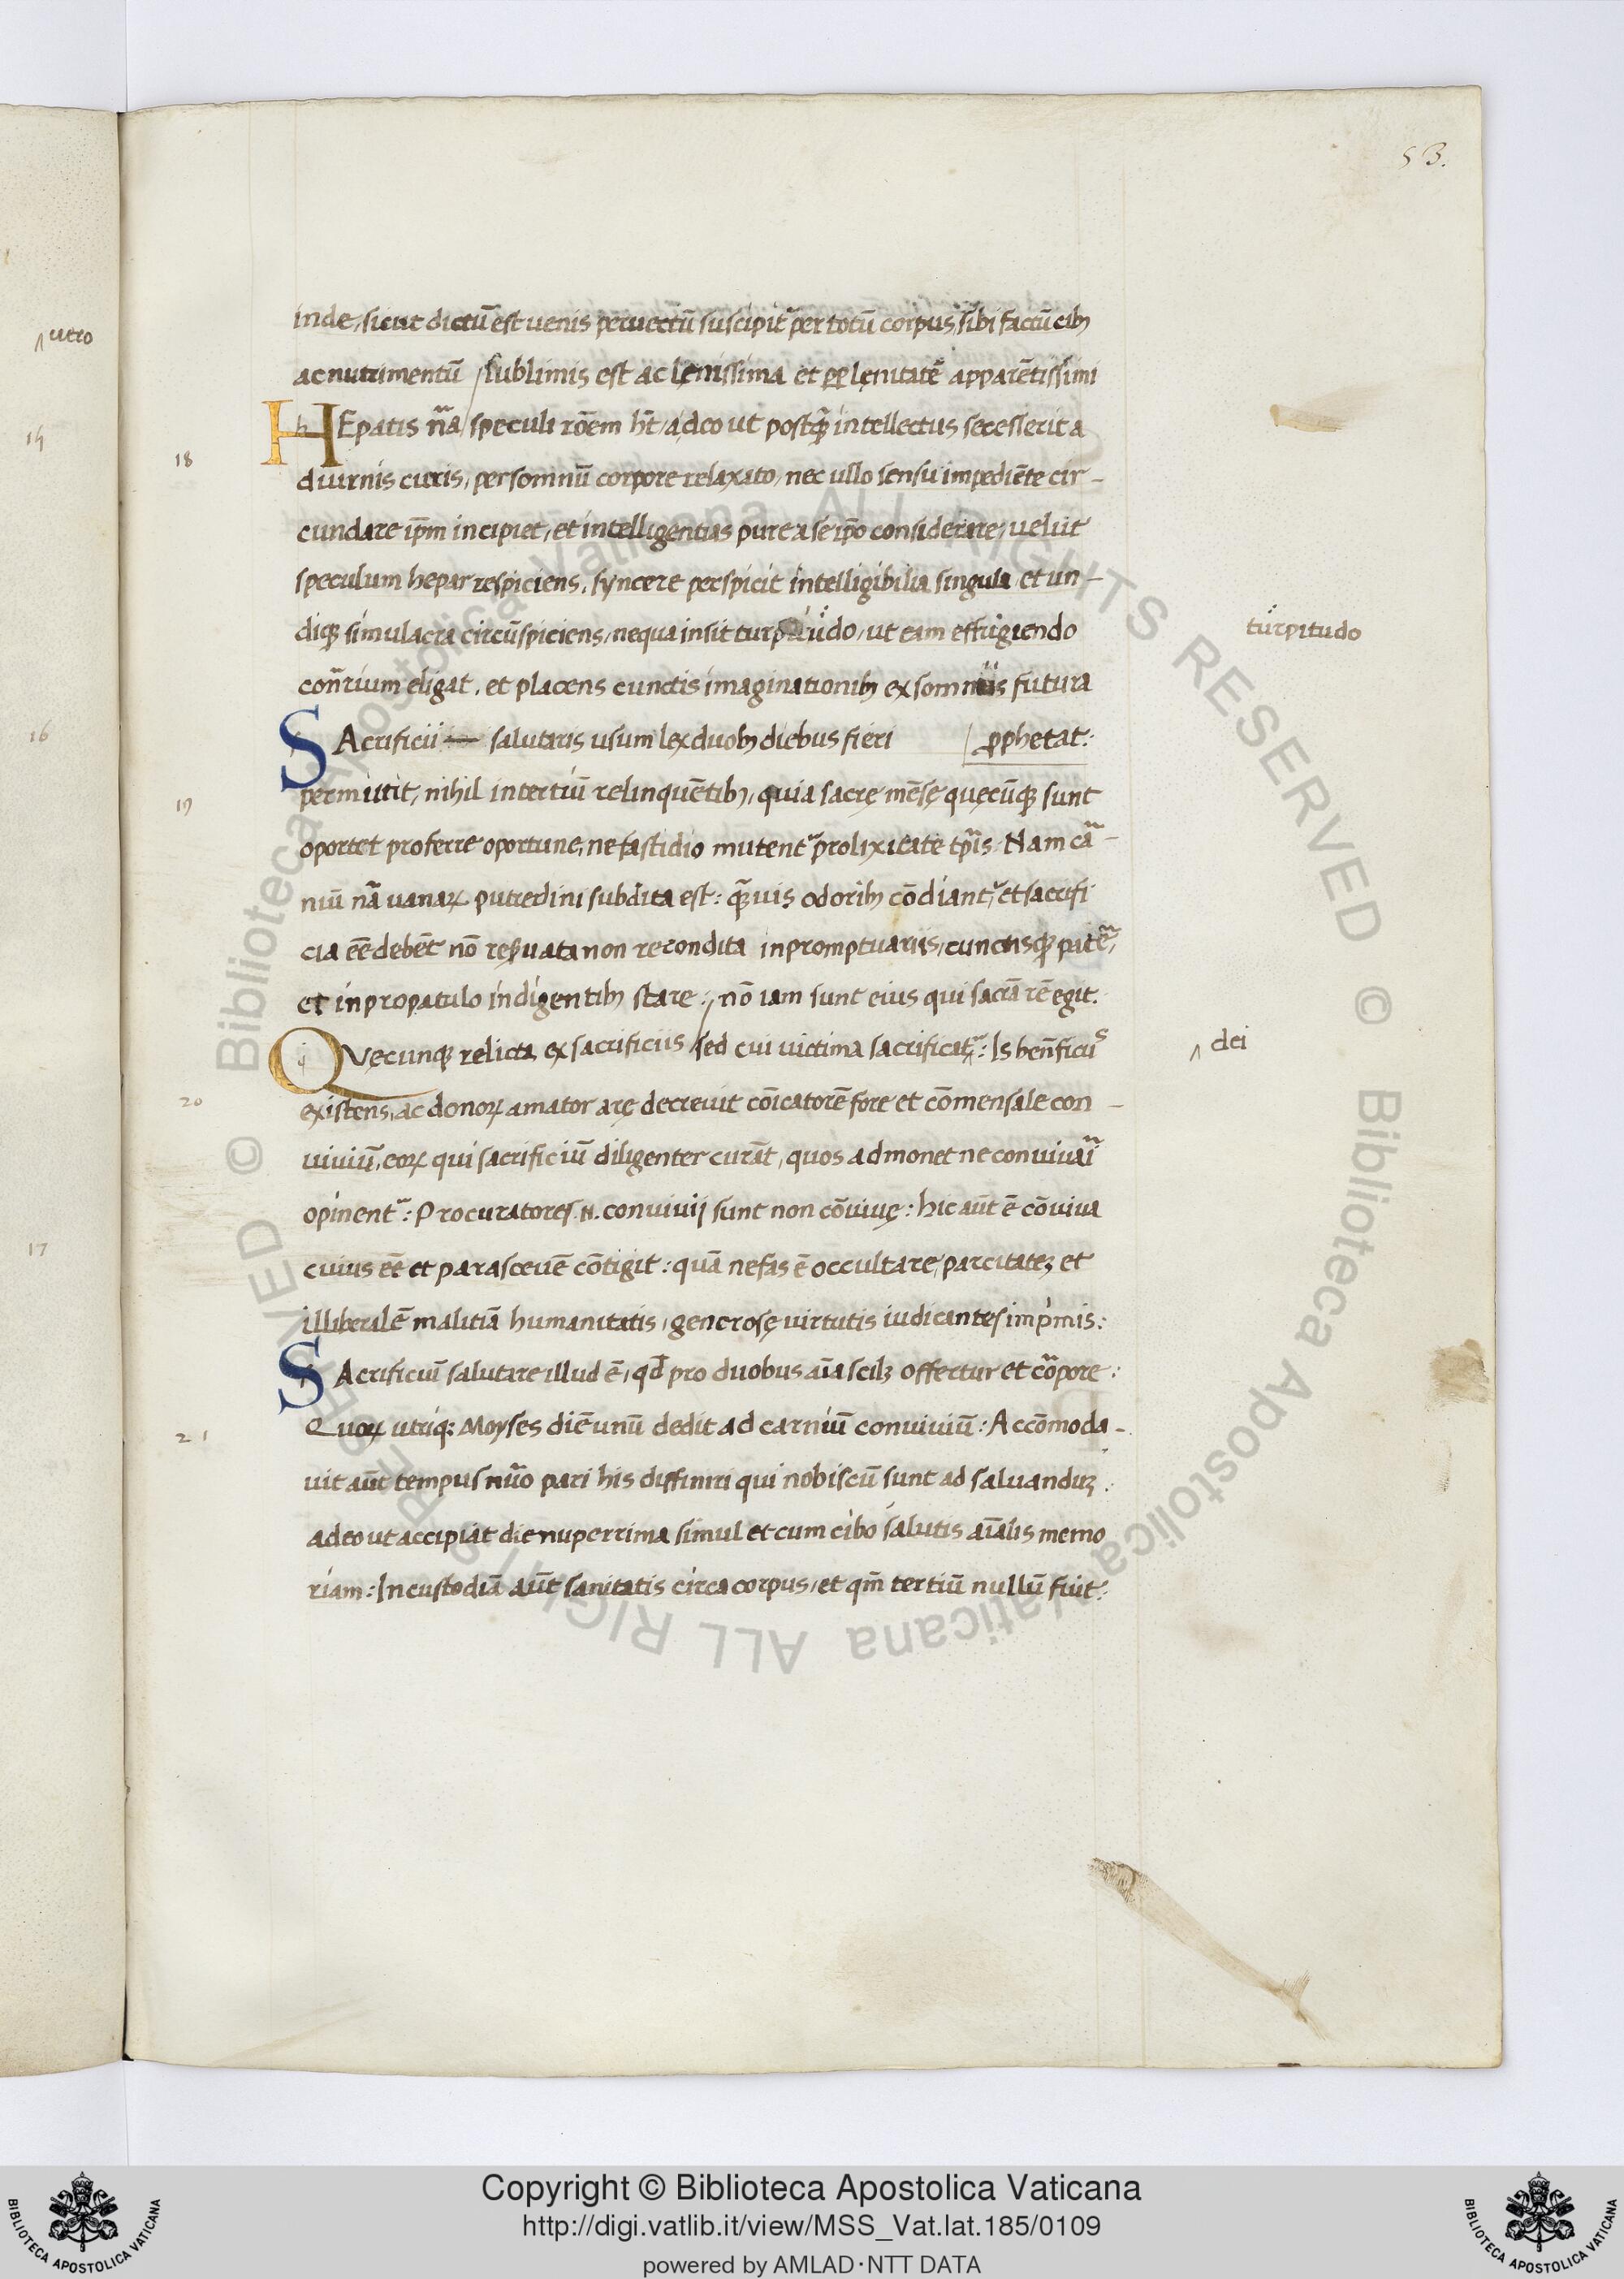 53.
inde, sicut dictū est uenis peruectū suscipit᷑ per totū corpus, sibi factū cibꝫ
ac nutrimentū / sublimis est ac lęnissima et ꝑp lęnitatē apparētissimi
HEpatis nr̄a / speculi rōem hr̄t / adeo ut postq̄ꝫ intellectus secesserit a
18
diurnis curis, per somnū corpore relaxato, nec ullo sensu impediēte cir-
cundare ip̄m incipiet, et intelligentias pure a se ip̄o considerare, uelut
speculum hepar respiciens, syncere perspicit intelligibilia singula et un-
diqꝫ simulacra circūspiciens, nequa insit turpitudo, ut eam effugiendo
turpitudo
con̄rium eligat, et placens cunctis imaginationibꝫ ex somniis futura
SAcrificii salutaris usum lex duobꝫ diebus fieri | ꝓphetat:
permittit, nihil in tertiū relinquētibꝫ, quia sacrę mēsę quęcūqꝫ sunt
19
oportet proferre oportune, ne fastidio mutent᷑ prolixitate tp̄is. Nam ca᷑-
niū nā uanaꝝ putredini subdita est: q̄ꝫuis odoribꝫ cōdiant᷑, et sacrifi
cia eē debēt nō reseruata non recondita in promptuariis, cunctisqꝫ patēr,
et in propatulo indigentibꝫ stare: / nō iam sunt eius qui sacrā rē egit.
QVęcunqꝫ relicta ex sacrificiis / sed cui uictima sacrificat᷑: Is ben̄ficus
dei
20
existens, ac donoꝝ amator arę decreuit cōicatorē fore et cōmensale con-
uiuiū, eoꝝ qui sacrificiū diligenter curāt, quos admonet ne conuiuaī
opinent᷑: Procuratores .N. conuiuij sunt non cōuiuę: hic aūt ē cōuiua
cuius eē et parasceuē cōtigit: quā nefas ē occultare, parcitateꝫ et
illiberalē malitiā humanitatis, generosę uirtutis iudicantes imp̄mis:
SAcrificiū salutare illud ē, qd̄ pro duobus aīa scilꝫ offertur et co᷑pore:
Quoꝝ utriqꝫ Moyses diē unū dedit ad carniū conuiuiū: Accōmoda-
21
uit aūt tempus nūo pari his diffiniri qui nobiscū sunt ad saluanduꝫ.
adeo ut accipiāt die nuperrima simul et cum cibo salutis aīalis memo
riam: In custodiā aūt sanitatis circa corpus, et qm̄ tertiū nullū fuit:
utro
16
17
Copyright © Biblioteca Apostolica Vaticana
http://digi.vatlib.it/view/MSS_Vat.lat.185/0109
powered by AMLAD·NTT DATA
BIBLIOTECA APOSTOLICA VATICANA
BIBLIOTECA APOSTOLICA VATICANA
© Biblioteca Apostolica Vaticana ALL RIGHTS RESERVED © Biblioteca Apostolica Vaticana ALL RIGHTS RESERVED